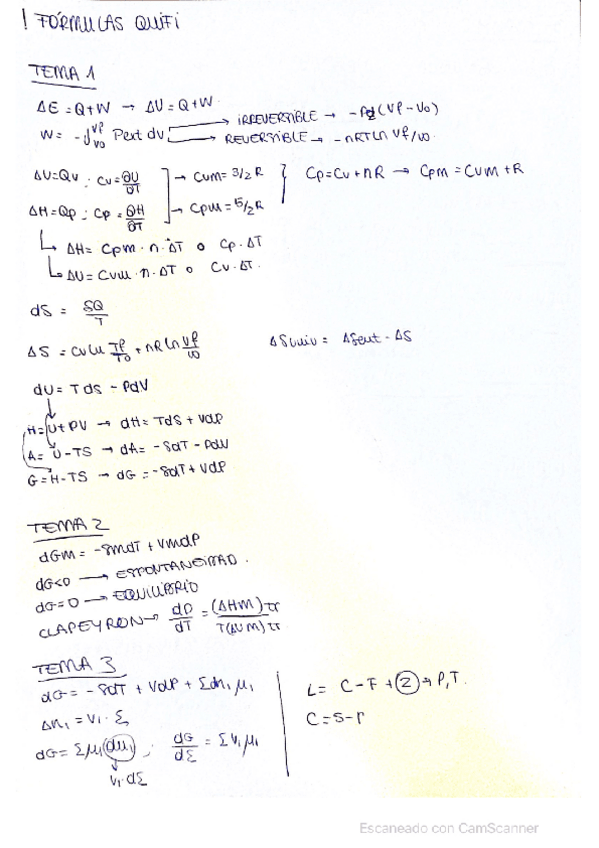 ! FÓRMULAS QUIFI
TEMA 1
ΔE = Q+W → ΔU = Q+W.
W = -∫Vf V0 Pext dV → IRREVERSIBLE → -P(Vf-V0)
→ REVERSIBLE → -nRT Ln Vf/V0
ΔU=Qv : Cv= ∂U/∂T → Cvm= 3/2 R
Cp=Cv+nR → Cpm = Cvm+R
ΔH=Qp : Cp = ∂H/∂T → Cpm = 5/2 R
↳ ΔH= Cpm · n · ΔT o Cp · ΔT
↳ ΔU= Cvm · n · ΔT o Cv · ΔT.
dS = δQ/T
ΔS = Cv Ln Tf/T0 + nR Ln Vf/V0
ΔSuniv = ΔSent - ΔS
dU= TdS - PdV
H= U+PV → dH= TdS + VdP
A= U-TS → dA= -SdT - PdV
G= H-TS → dG = -SdT + VdP
TEMA 2
dGm = -SmdT + VmdP
dG<0 → ESPONTANEIDAD.
dG=0 → EQUILIBRIO
CLAPEYRON → dP/dT = (ΔHm)tr / T(ΔVm)tr
TEMA 3
dG= -SdT + VdP + Σdni μi
Δni = νi · ξ
dG= Σμi dni ; dG/dξ = Σνi μi
νi · dξ
L= C-F + 2 → P, T.
C = S-r
Escaneado con CamScanner